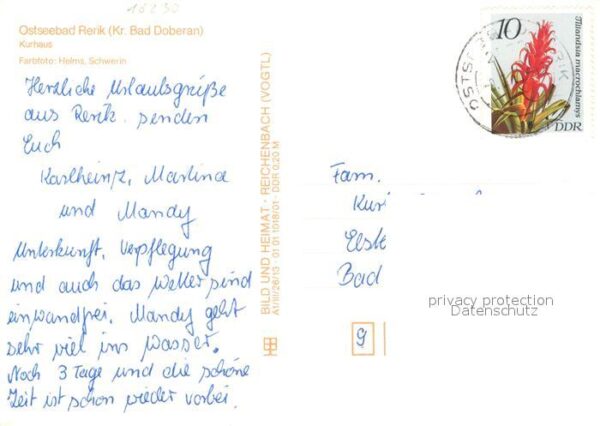 16230
Ostseebad Rerik (Kr. Bad Doberan)
Kurhaus
Farbfoto: Helms, Schwerin
Herzliche Urlaubsgrüße
aus Rerik senden
Euch
Karlheinz, Martina
und Mandy
Unterkunft, Verpflegung
und auch das Wetter sind
einwandfrei. Mandy geht
sehr viel ins Wasser.
Noch 3 Tage und die schöne
Zeit ist schon wieder vorbei.
BILD UND HEIMAT · REICHENBACH (VOGTL)
A1/III/26/13 · 01 01 1018/01 · DDR 0,20 M
10
Tillandsia macrochlamys
DDR
Fam.
Bad
privacy protection
Datenschutz